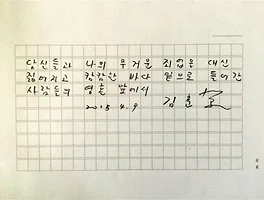 당신들과 나의 무거운 죄업을 대신
짊어지고 캄캄한 바다 밑으로 들어간
사람들의 영혼 앞에서
2015 4. 9
김훈